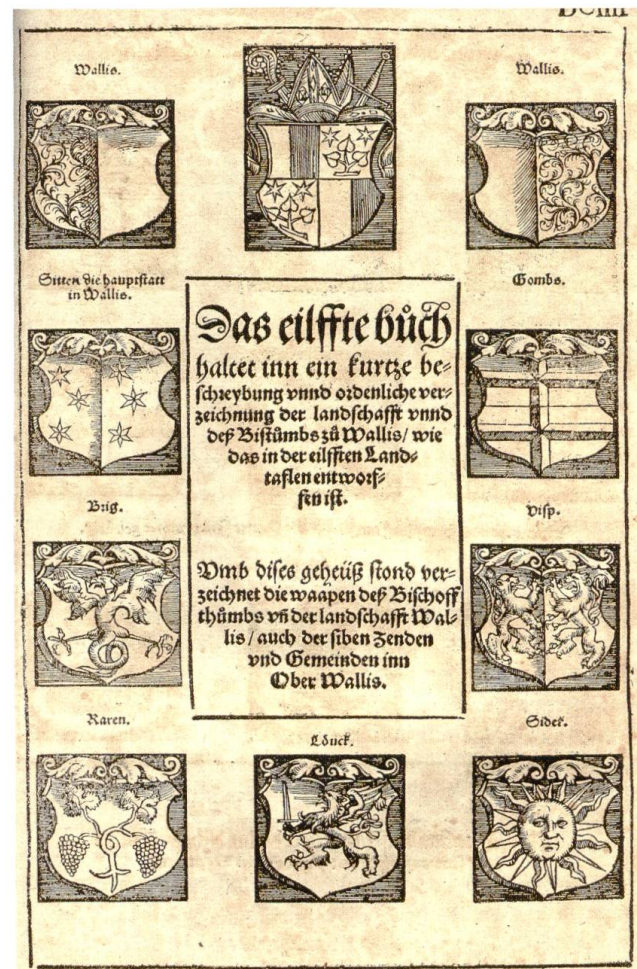 Wallis.
Wallis.
Sitten die hauptstatt
in Wallis.
Gombs.
Das eilffte bůch
haltet inn ein kurtze be⸗
schreybung vnnd ordenliche ver⸗
zeichnung der landschafft vnnd
deß Bistůmbs zů Wallis/ wie
das in der eilfften Land⸗
taflen entworf⸗
fen ist.
Brig.
Visp.
Vmb dises geheüß stond ver⸗
zeichnet die waapen deß Bischoff
thůmbs vn̄ der landschafft Wal⸗
lis/ auch der siben Zenden
vnd Gemeinden inn
Ober Wallis.
Raren.
Löuck.
Sider.